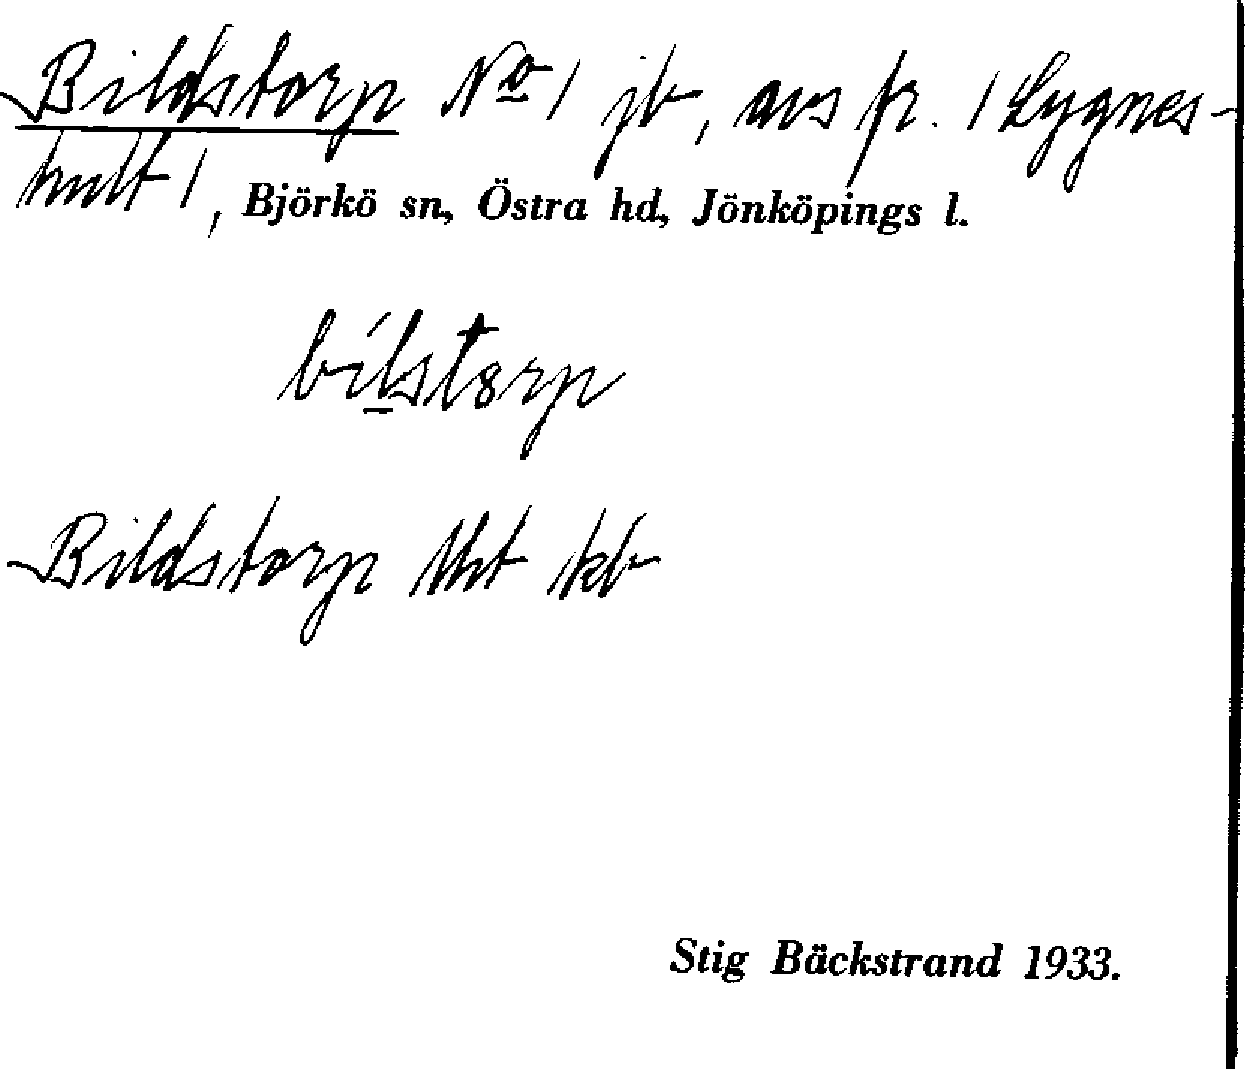 Bildstorp No 1 jb, avs fr. 1 Lygnes-
hult 1, Björkö sn, Östra hd, Jönköpings l.
bílstorp
Bildstorp kb
Stig Bäckstrand 1933.